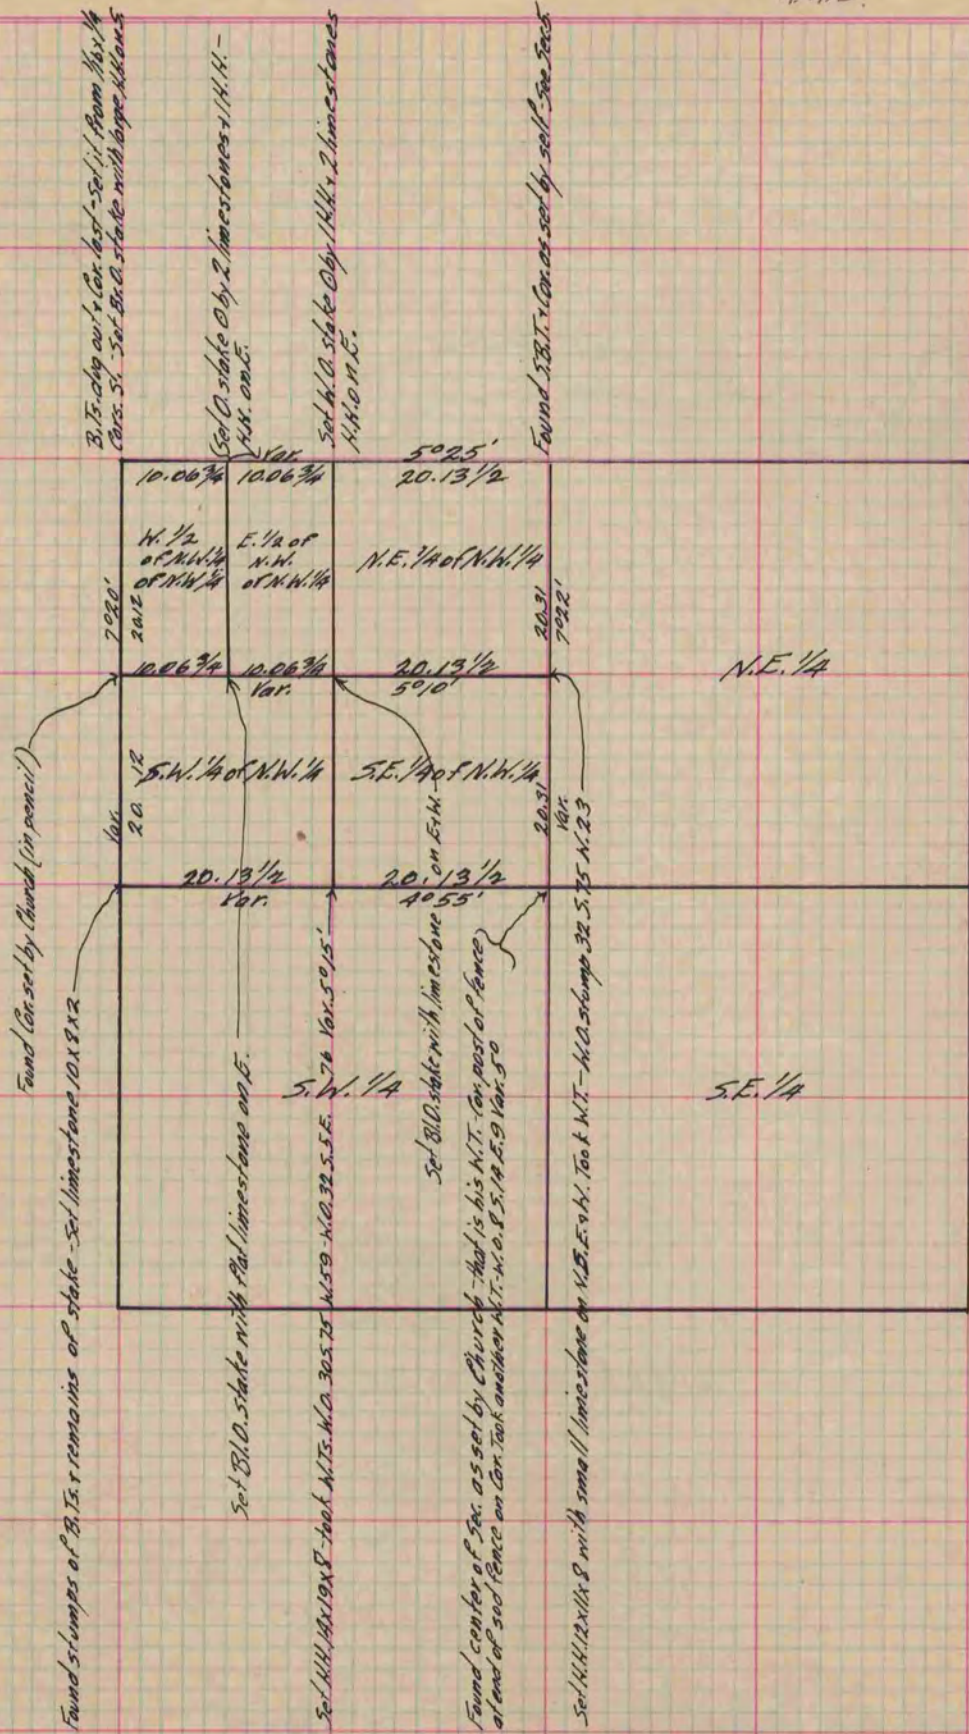 B.Ts. dug out & Cor. lost - Set it from 1/16 x 1/4
Cors. S. - Set Br. O. stake with large H.H. on S.
Set O. stake 0 by 2 limestones & 1 H.H. -
H.H. on E.
Set W.O. stake 0 by 1 H.H. & 2 limestones
H.H. on E.
Found S.B.T. & Cor. as set by self - See Sec. 5
Var.
5°25'
10.06 3/4
10.06 3/4
20.13 1/2
W. 1/2
of N.W. 1/4
of N.W. 1/4
E. 1/2 of
N.W.
of N.W. 1/4
N.E. 1/4 of N.W. 1/4
7°20'
20.12
20.31
7°22'
10.06 3/4
10.06 3/4
20.13 1/2
Var.
5°10'
N.E. 1/4
Found Cor. set by Church (in pencil)
Var.
20.12
S.W. 1/4 of N.W. 1/4
S.E. 1/4 of N.W. 1/4
20.31
Var.
20.13 1/2
20.13 1/2
Var.
4°55'
S.W. 1/4
S.E. 1/4
Found stumps of B.Ts. & remains of stake - Set limestone 10x8x2
Set Bl.O. stake with flat limestone on E.
Set H.H. 14x19x8 - took W.Ts. W.O. 30 S 75 W. 59 - W.O. 32 S 5 E. 76 Var. 5°15'
Set Bl.O. stake with limestone on E & W.
Found center of Sec. as set by Church - that is his W.T. - Cor. post of fence
at end of sod fence on Cor. Took another W.T. - W.O. 8 S. 14 E. 9 Var. 5°
Set H.H. 12x11x8 with small limestone on N.S.E. & W. Took W.T. - W.O. stump 32 S. 75 W. 23